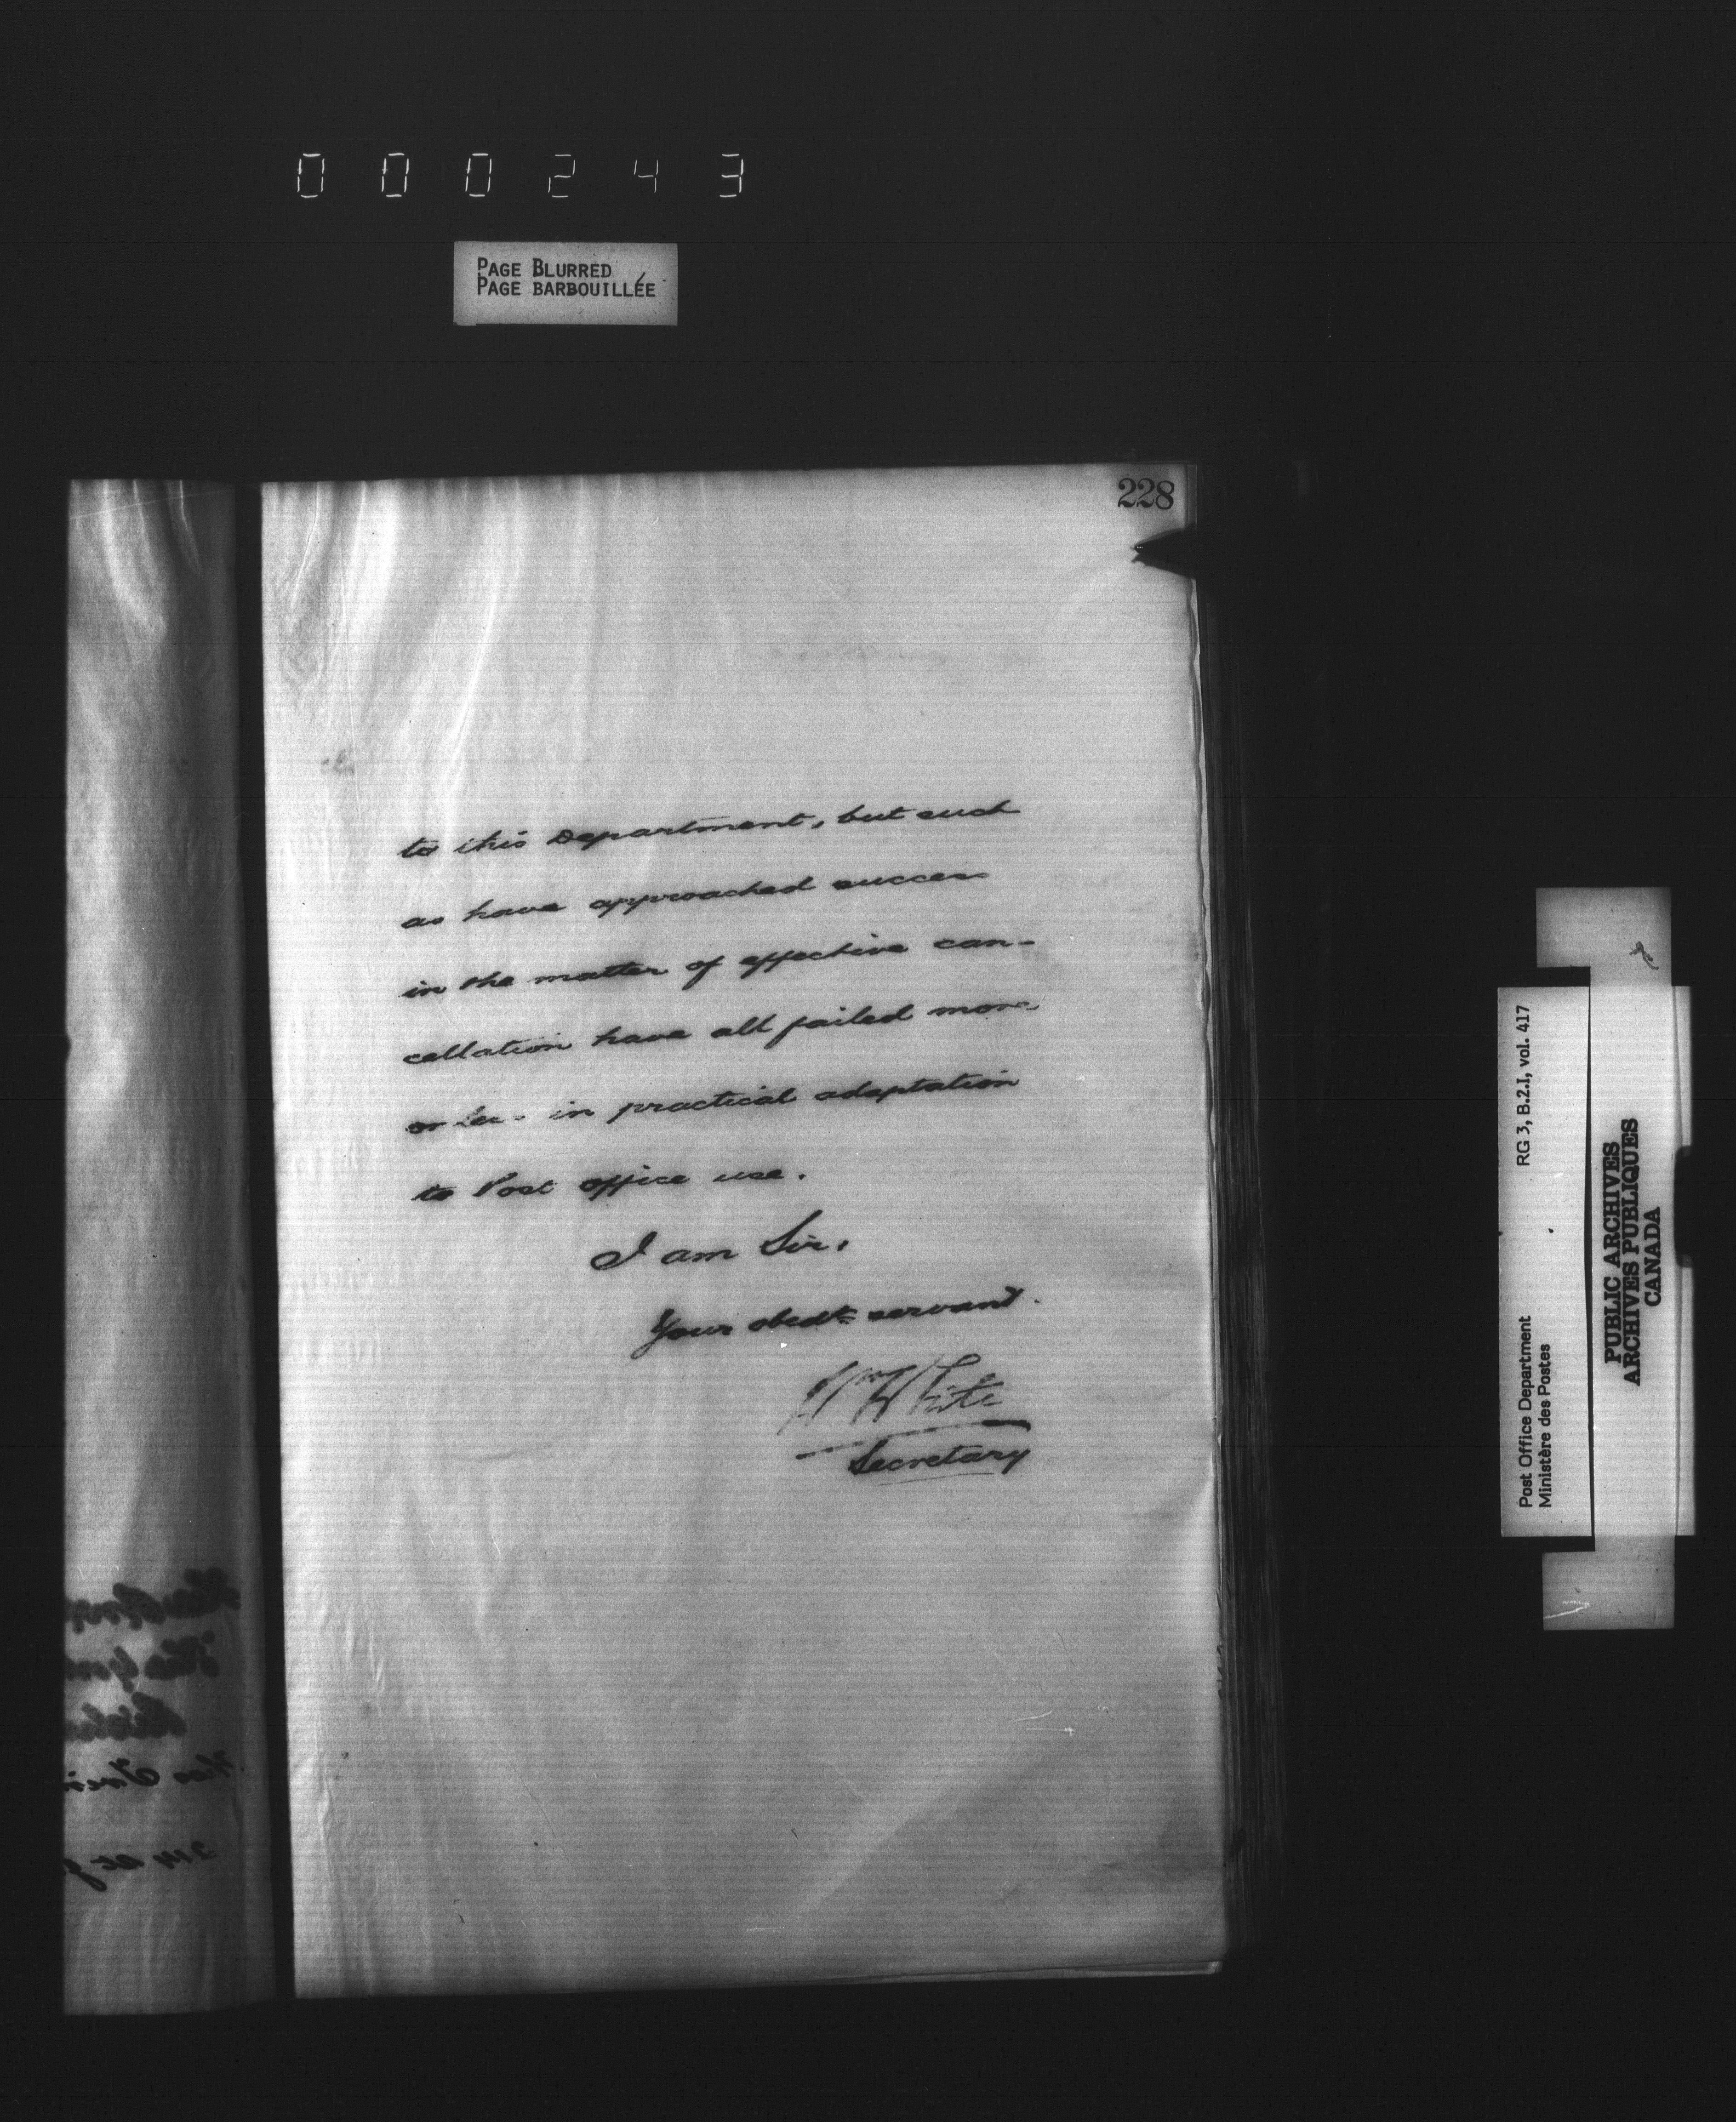 000243
PAGE BLURRED
PAGE BARBOUILLÉE
228
to this Department, but such
as have approached success
in the matter of effective can-
cellation have all failed more
or less in practical adaptation
to Post office use.
I am Sir,
Your obedt. servant.
Wm White
Secretary
Post Office Department RG 3, B.2.I, vol. 417
Ministère des Postes
PUBLIC ARCHIVES
ARCHIVES PUBLIQUES
CANADA